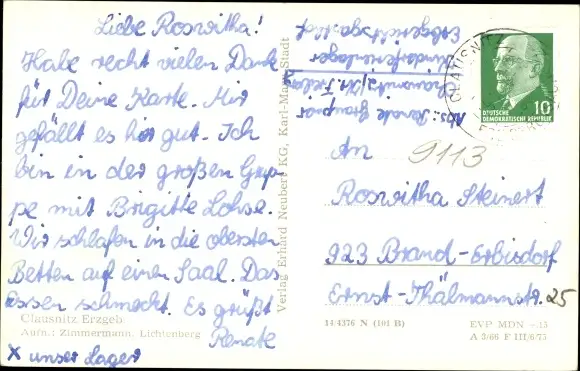 Liebe Roswitha!
Habe recht vielen Dank
für Deine Karte. Mir
gefällt es hier gut. Ich
bin in der großen Grup-
pe mit Brigitte Lohse.
Wir schlafen in die obersten
Betten auf einen Saal. Das
Essen schmeckt. Es grüßt
Renate
Clausnitz Erzgeb.
Aufn.: Zimmermann, Lichtenberg
X unser Lager
Verlag Erhard Neubert KG, Karl-Marx-Stadt
Abs.: Renate
Kr. Freiberg
Kinderferienlager
Erbgerichtsgasthof
CLAUSNITZ
10
DEUTSCHE
DEMOKRATISCHE REPUBLIK
An
9113
Roswitha Steinert
923 Brand-Erbisdorf
Ernst-Thälmannstr. 25
14/4376 N (101 B)
EVP MDN -.15
A 3/66 F III/6/75